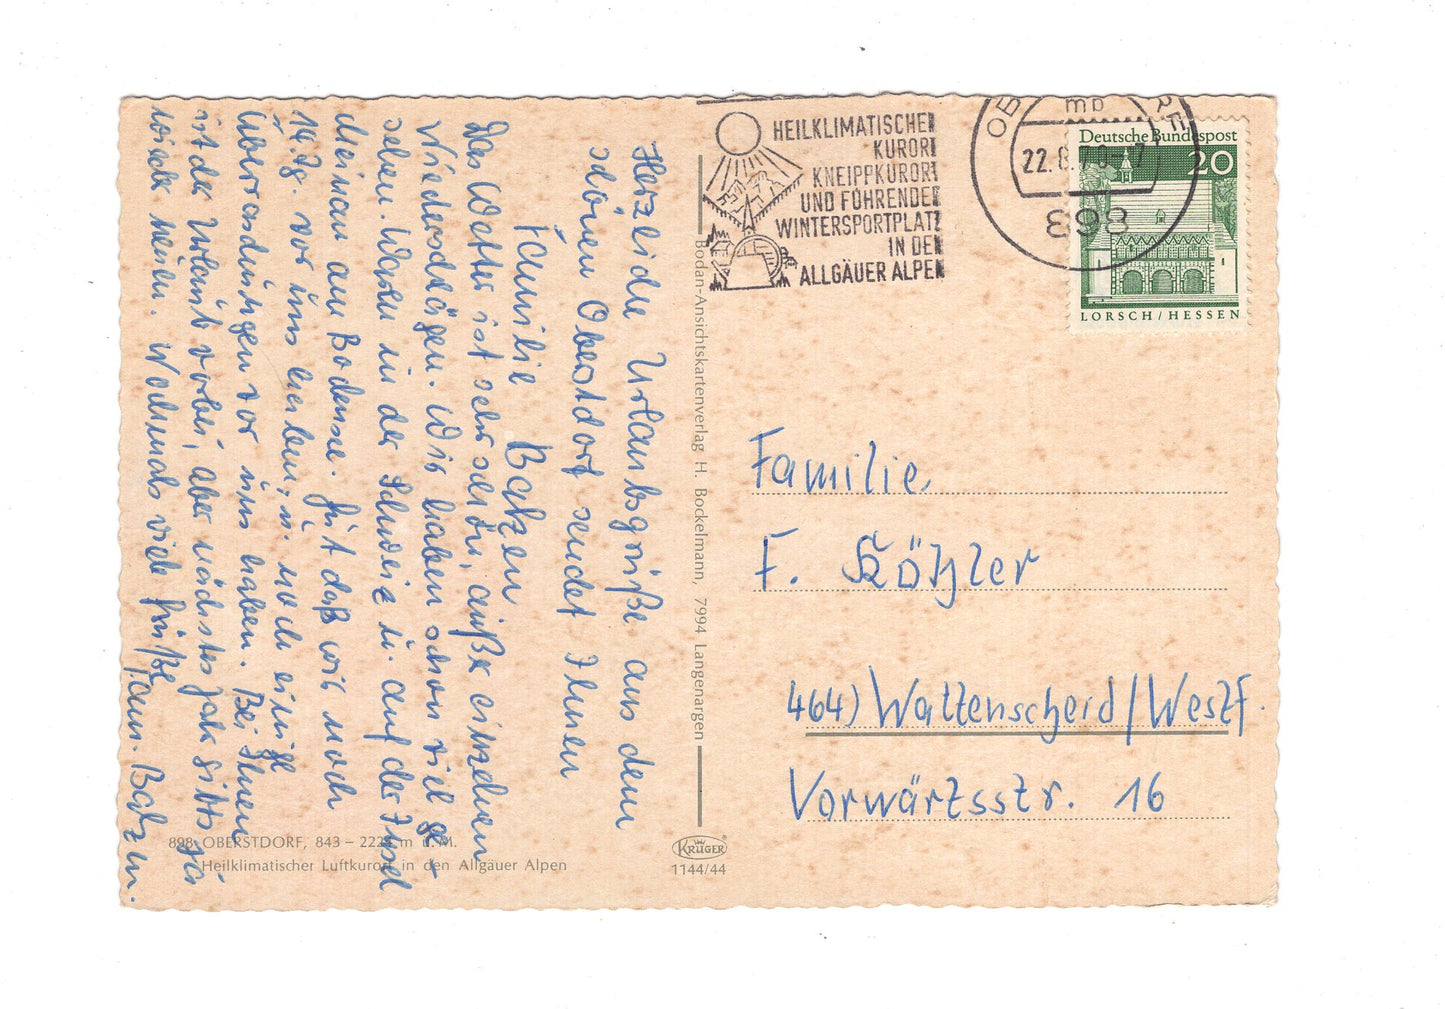 Herzliche Urlaubsgrüße aus dem
schönen Oberstdorf sendet Ihnen
Familie Batzen
Das Wetter ist sehr schön, außer einzelnen
Niederschlägen. Wir haben schon viel ge-
sehen. Waren in der Schweiz u. auf der Insel
Meinau am Bodensee. Gut daß wir noch
14 Tg. vor uns haben, u. noch einige
Überraschungen vor uns haben. Bei Ihnen
ist der Urlaub vorbei, aber nächstes Jahr gibts ja
wieder neuen. Nochmals viele Grüße
Fam. Batzen.
898 OBERSTDORF, 843 – 2224 m ü. M.
Heilklimatischer Luftkurort in den Allgäuer Alpen
Bodan-Ansichtskartenverlag H. Bockelmann, 7994 Langenargen
KRÜGER
1144/44
HEILKLIMATISCHER
KURORT
KNEIPPKURORT
UND FÜHRENDER
WINTERSPORTPLATZ
IN DEN
ALLGÄUER ALPEN
mb
22.8.
898
Deutsche Bundespost
20
LORSCH/HESSEN
Familie
F. Kötzler
464) Wattenscheid/Westf.
Vorwärtsstr. 16